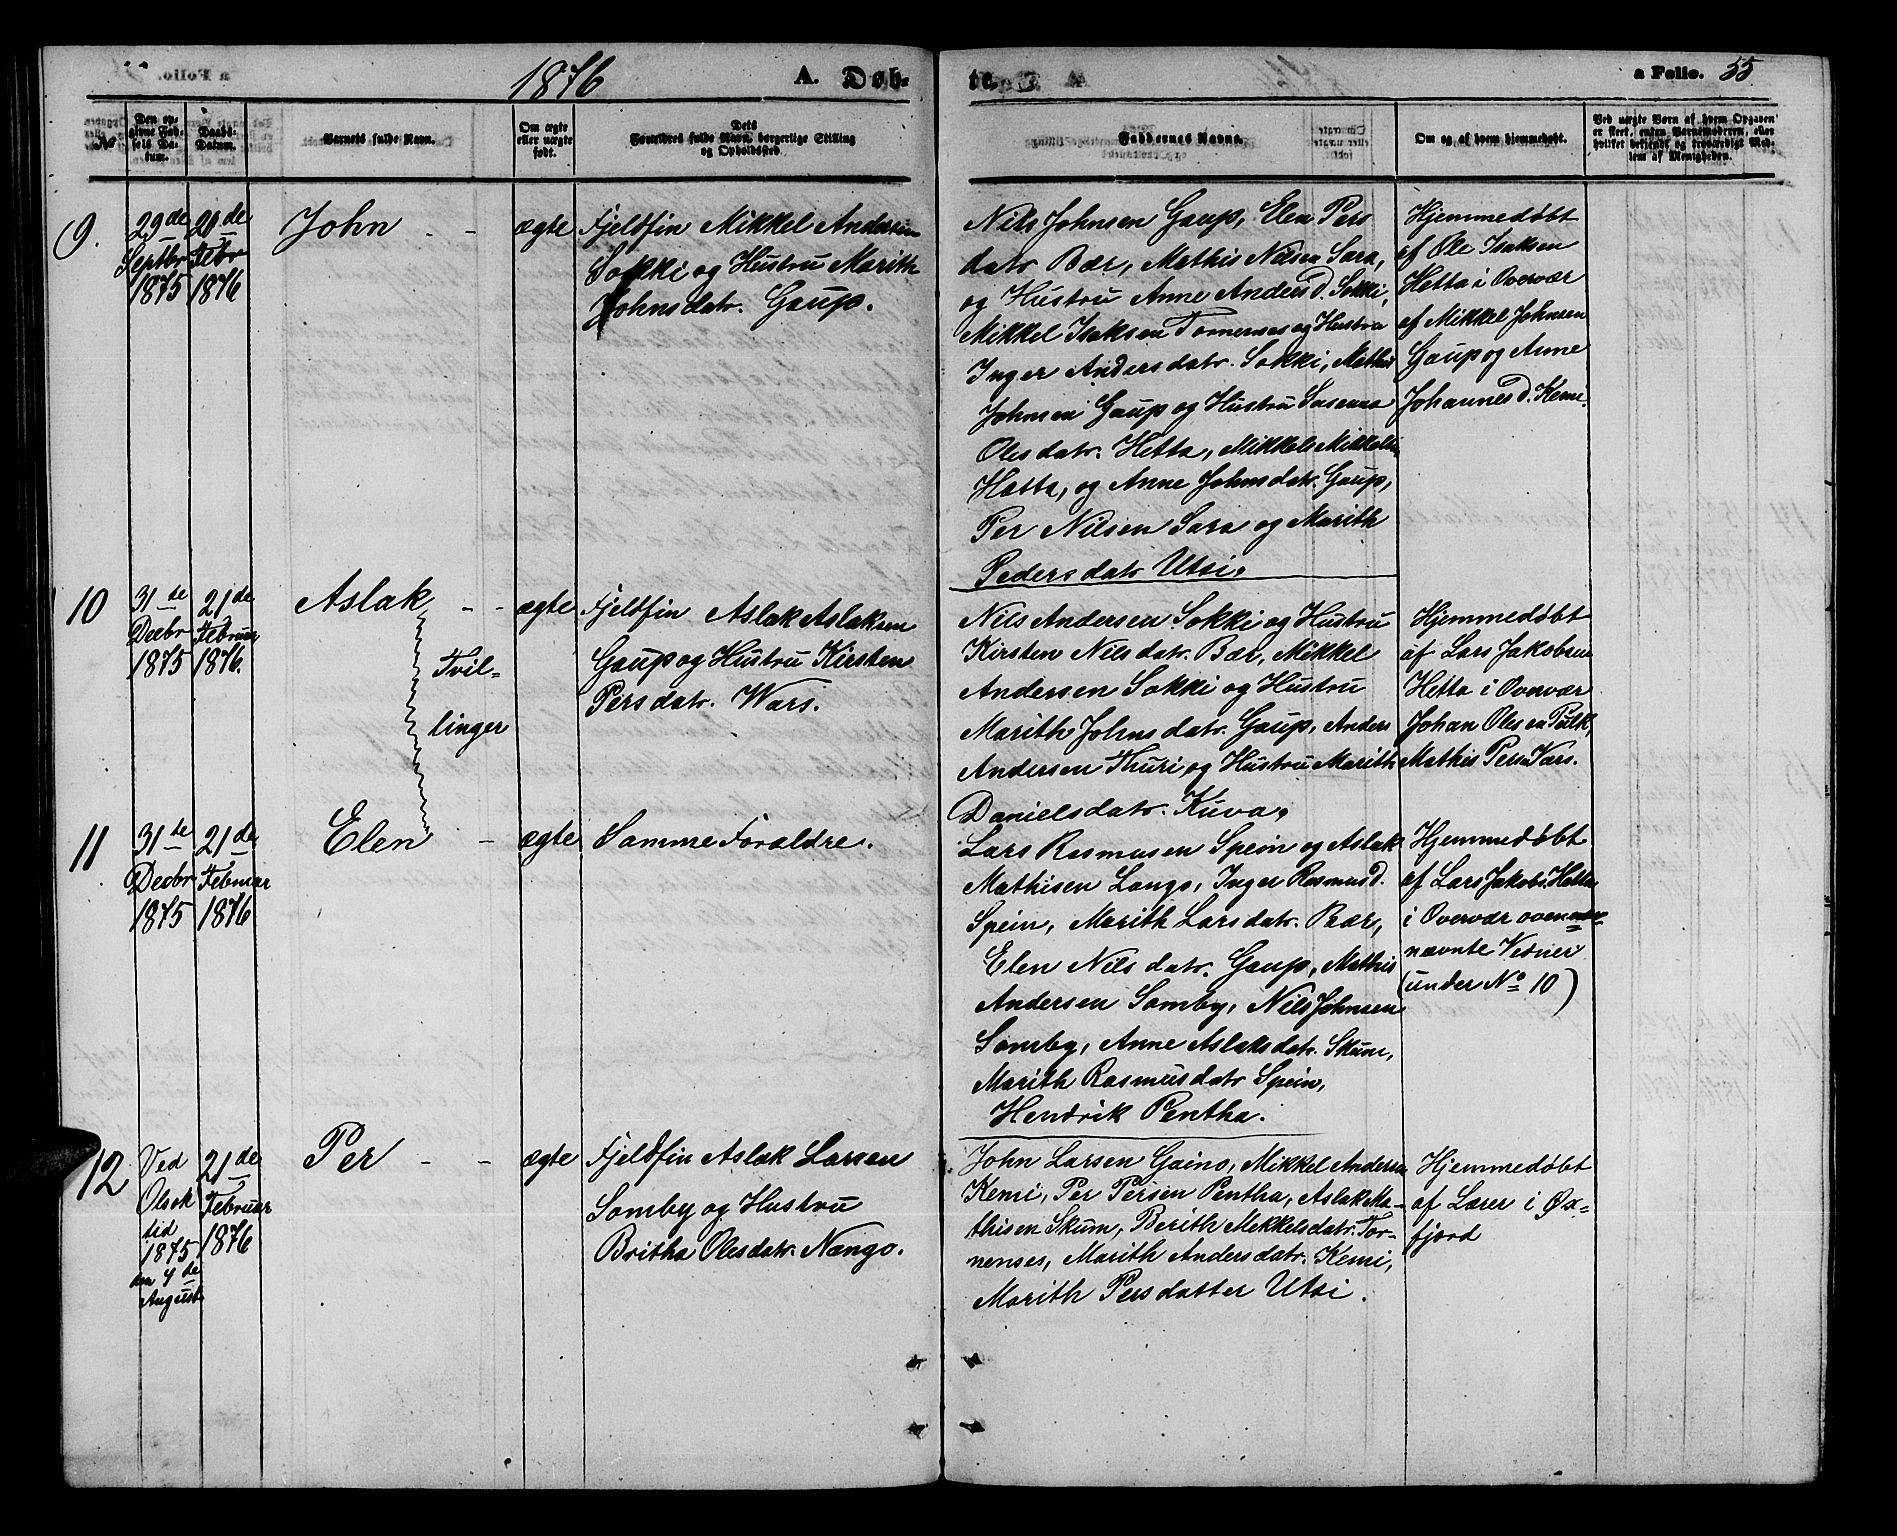 1876
A. Døb-
te.
a Folio. 55
No
Den op-
givne Fød-
sels Da-
tum.
Daabs-
Datum.
Barnets fulde Navn.
Om ægte
eller uægte
født.
Dets
Forældres fulde Navn, borgerlige Stilling
og Opholdssted.
Faddernes Navne.
Om og af hvem hjemmedøbt.
Ved uægte Børn af hvem Opgaven
er skeet, enten Barnemoderen, eller
hvilket bekjendt og troværdigt Med-
lem af Menigheden.
9.
29de
Septbr
1875
20de
Febr
1876
John - -
ægte
Fjeldfin Mikkel Andersen
Sokki og Hustru Marith
Johnsdatr. Gaup.
Nils Johnsen Gaup, Elen Pers
datr Bær, Mathis Nilsen Sara,
og Hustru Anne Anders D. Sokki,
Mikkel Isaksen Tornenses og Hustru
Inger Andersdatr. Sokki, Mathis
Johnsen Gaup og Hustru Susanna
Olesdatr. Hetta, Mikkel Mikkelsen
Hætta, og Anne Johnsdatr. Gaup,
Per Nilsen Sara og Marith
Pedersdatr Utsi.
Hjemmedøbt
af Ole Isaksen
Hetta i Overvær
af Mikkel Johnsen
Gaup og Anne
Johannes D. Kemi.
10
31te
Decbr
1875
21de
Februar
1876.
Aslak - -
Tvil-
linger
ægte
Fjeldfin Aslak Aslaksen
Gaup og Hustru Kirsten
Persdatr. Wars.
Nils Andersen Sokki og Hustru
Kirsten Nilsdatr. Bær, Mikkel
Andersen Sokki og Hustru
Marith Johnsdatr. Gaup, Anders
Andersen Thuri og Hustru Marith
Danielsdatr. Kuva.
Hjemmedøbt
af Lars Jakobsen
Hetta i Overvær
Johan Olesen Pulk,
Mathis Persen Vars.
11
31te
Decbr
1875
21de
Februar
1876
Elen -
ægte
Samme Forældre.
Lars Rasmusen Spein og Aslak
Mathisen Lango, Inger Rasmus D.
Spein, Marith Larsdatr. Bær,
Elen Nilsdatr. Gaup, Mathis
Andersen Somby, Nils Johnsen
Somby, Anne Aslaksdatr. Skum,
Marith Rasmusdatr Spein,
Hendrik Pentha.
Hjemmedøbt
af Lars Jakobs. Hetta
i Overvær oven-
nævnte Vidner
(under No 10)
12
Ved
Olsok
tid
1875
den 4de
August
21de
Februar
1876
Per - -
ægte
Fjeldfin Aslak Larsen
Somby og Hustru
Britha Olesdatr. Nango.
John Larsen Gaino, Mikkel Andersen
Kemi, Per Persen Pentha, Aslak Ma-
thisen Skum, Berith Mekkelsdatr. Tor-
nenses, Marith Andersdatr. Kemi,
Marith Persdatter Utsi.
Hjemmedøbt
af Lærer i Øx-
fjord